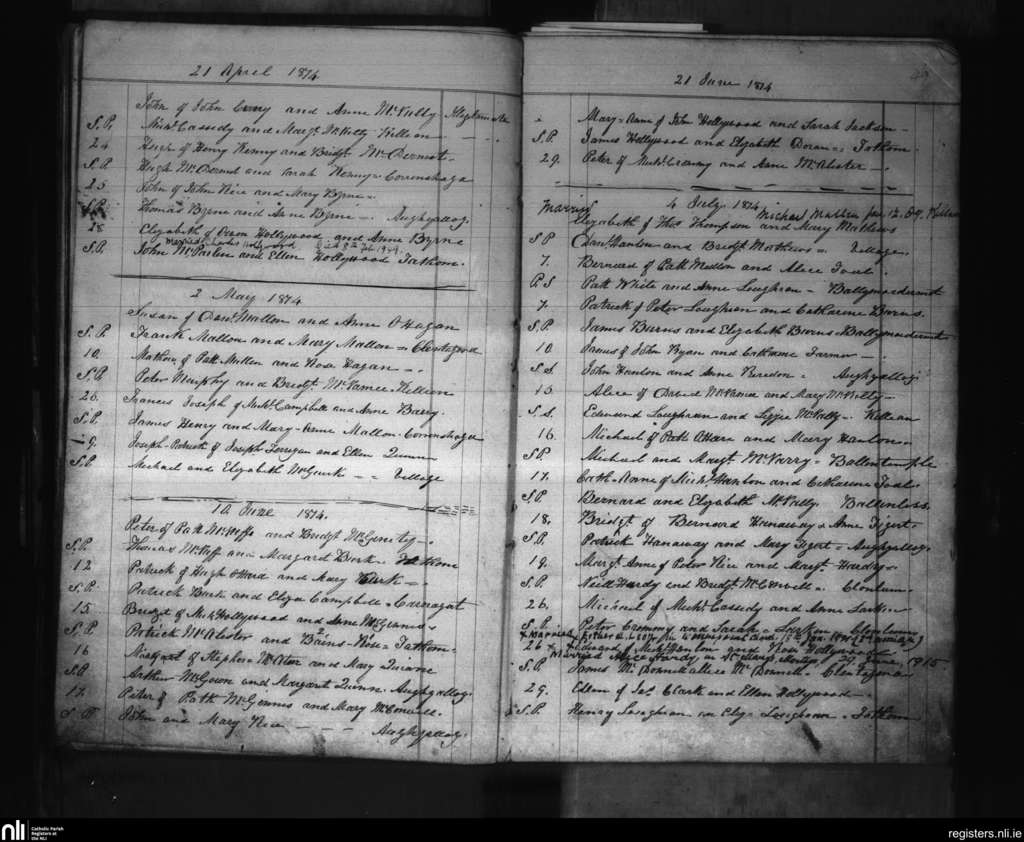 21 April 1874
John of John Curry and Anne McNully
S.P. Michl Cassidy and Margt McNully Killean
24 Hugh of Henry Kenny and Bridgt McDermot
S.P. Hugh McDermot and Sarah Kenny - Corrinshaga
25 John of John Rice and Mary Byrne
S.P. Thomas Byrne and Anne Byrne - Aughyallog
28 Elizabeth of Owen Hollywood and Anne Byrne
married
S.P. John McParlin and Ellen Hollywood Fathom
2 May 1874
Susan of Danl Mallon and Anne O'Hagan
S.P. Frank Mallon and Mary Mallon - Clontygora
10. Mathew of Patt Mullen and Rose Hagan
S.P. Peter Murphy and Bridgt McNamee Killeen
26. Francis Joseph of Michl Campbell and Anne Barry
S.P. James Henry and Mary-Anne Mallon - Corrinshaga
9. Joseph-Patrick of Joseph Ferrigan and Ellen Quinn
S.P. Michael and Elizabeth McGurk - Village
10 June 1874.
Peter of Patt McKeffe and Bridgt McGinity
S.P. Thomas McKeff and Margaret Burk - Fathom
12 Patrick of Hugh O'Hare and Mary Burk
S.P. Patrick Burk and Eliza Campbell - Carnagat
15 Bridgt of Michl Hollywood and Anne McGinnis
S.P. Patrick McAlister and Rose - Fathom
16 Margaret of Stephen McAteer and Mary Quinn
S.P. Arthur McGivern and Margaret Quinn - Aughyallog
17. Peter of Patk McGinnis and Mary McConvill
S.P. John and Mary Rice - Aughyallog
21 June 1874
Mary-Anne of John Hollywood and Sarah Jackson
S.P. James Hollywood and Elizabeth Doran - Fathom
29. Peter of Michl Crawny and Anne McAlister
4 July 1874
Married Michael Mallin Jan 12. 09.
Elizabeth of Thos Thompson and Mary Mathews
S.P. Danl Hanlon and Bridgt Mathews - Village
7. Bernard of Patt Mallon and Alice Toal
P.S Patt White and Anne Loughran - Ballymacdermot
7. Patrick of Peter Loughran and Catharine Burns
S.P. James Burns and Elizabeth Burns - Ballymacdermot
10 James of John Ryan and Catharine Farmer
S.S John Hanlon and Anne - Aughyallog
15. Alice of Daniel McNamee and Mary McNully
S.S. Edmund Loughran and Lizzie McNally - Killean
16. Michael of Patk O'Hare and Mary Hanlon
S.P. Michael and Margt McVarry - Ballentemple
17. Cath-Anne of Michl Hanlon and Catharine Toal
S.P. Bernard and Elizabeth McNully Ballinless
18. Bridgt of Bernard Hanaway & Anne Tigert
S.P. Patrick Hanaway and Mary Tigert - Aughyallog
19. Margt Anne of Peter Rice and Margt Hardy
S.P. Neill Hardy and Bridgt McConvill - Clonlum
26. Michael of Michl Cassidy and Anne Larkin
S.P. Peter Crommy and Sarah Larkin Clonlum
x Married
26 x Edward of Michl Hanlon and Rose Hollywood
Married Alice Hardy in 29 June, 1915
S.P. James McDonnell Alice McDonnell - Clontygora
29. Ellen of Jas Clark and Ellen Hollywood
S.P. Henry Loughran Loughran - Fathom
nli
Catholic Parish
Registers at
the NLI
registers.nli.ie